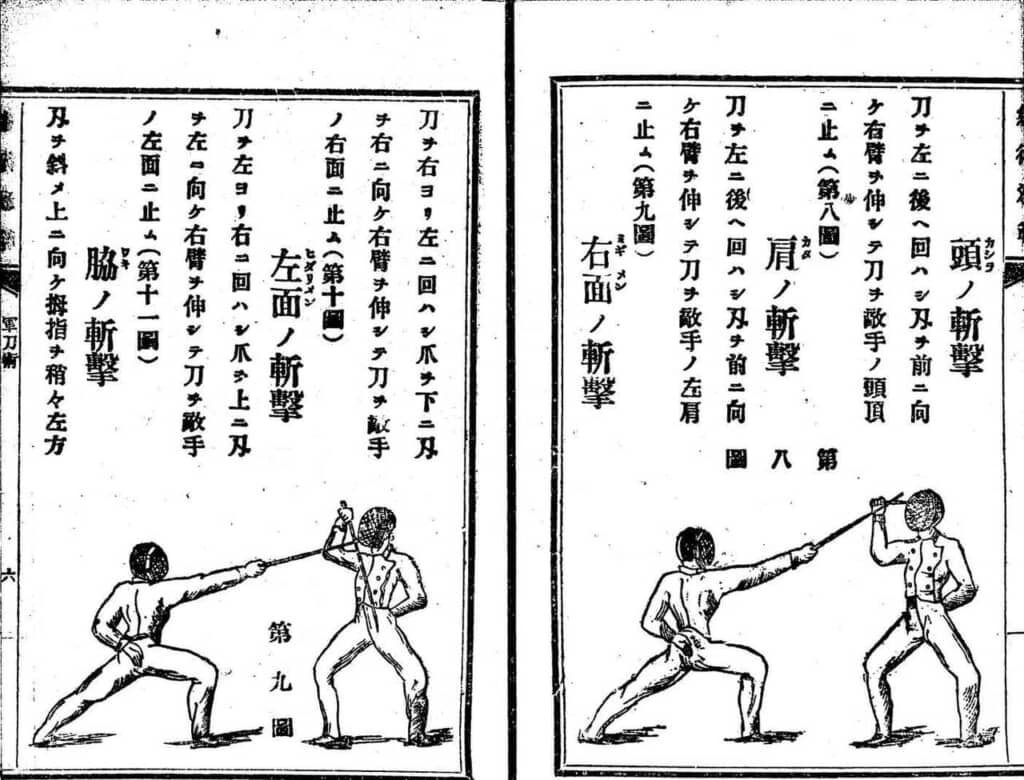 頭ノ斬撃
カシラ
刀ヲ左ニ後ヘ回ハシ刄ヲ前ニ向
ケ右臂ヲ伸シテ刀ヲ敵手ノ頭頂
ニ止ム(第八圖)
肩ノ斬撃
カタ
刀ヲ左ニ後ヘ回ハシ刄ヲ前ニ向
ケ右臂ヲ伸シテ刀ヲ敵手ノ左肩
ニ止ム(第九圖)
右面ノ斬撃
ミギメン
第八圖
刀ヲ右ヨリ左ニ回ハシ爪ヲ下ニ刄
ヲ右ニ向ケ右臂ヲ伸シテ刀ヲ敵手
ノ右面ニ止ム(第十圖)
左面ノ斬撃
ヒダリメン
刀ヲ左ヨリ右ニ回ハシ爪ヲ上ニ刄
ヲ左ニ向ケ右臂ヲ伸シテ刀ヲ敵手
ノ左面ニ止ム(第十一圖)
脇ノ斬撃
ワキ
刄ヲ斜メ上ニ向ケ拇指ヲ稍々左方
第九圖
軍刀術
六